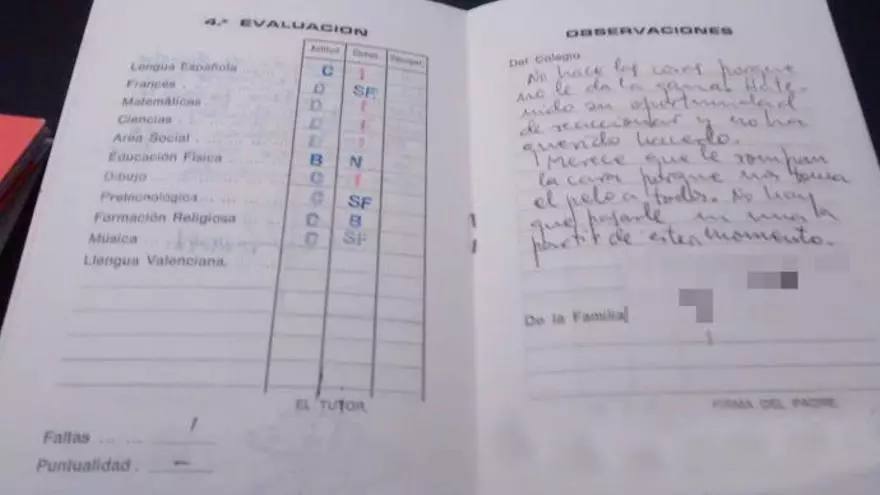 4.ª EVALUACION
Actitud Conoc. Recuper.
Lengua Española C I
Francés D SF
Matemáticas D I
Ciencias D I
Area Social D I
Educación Física B N
Dibujo C I
Pretecnológica C SF
Formación Religiosa C B
Música C SF
Llengua Valenciana.
EL TUTOR
Faltas 1
Puntualidad. -
OBSERVACIONES
Del Colegio
No hace las cosas porque
no le da la gana. Ha te-
nido su oportunidad
de reaccionar y no ha
querido hacerlo.
¡Merece que le rompan
la cara porque nos toma
el pelo a todos. No hay
que pasarle ni una a
partir de este momento.
De la Familia
FIRMA DEL PADRE